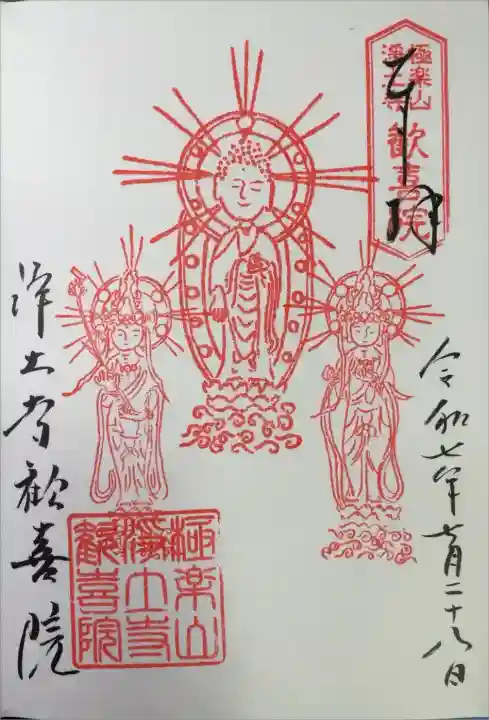 極楽山
浄土寺
歓喜院
奉拝
令和七年七月二十八日
浄土寺歓喜院
極楽山
浄土寺
歓喜院